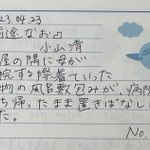 23.04.23
前途なお」
小山清
屋の隅に母が
院する際着ていった
物の風呂敷包みが、病院
ち帰ったまま置きぱなし
た。
No.